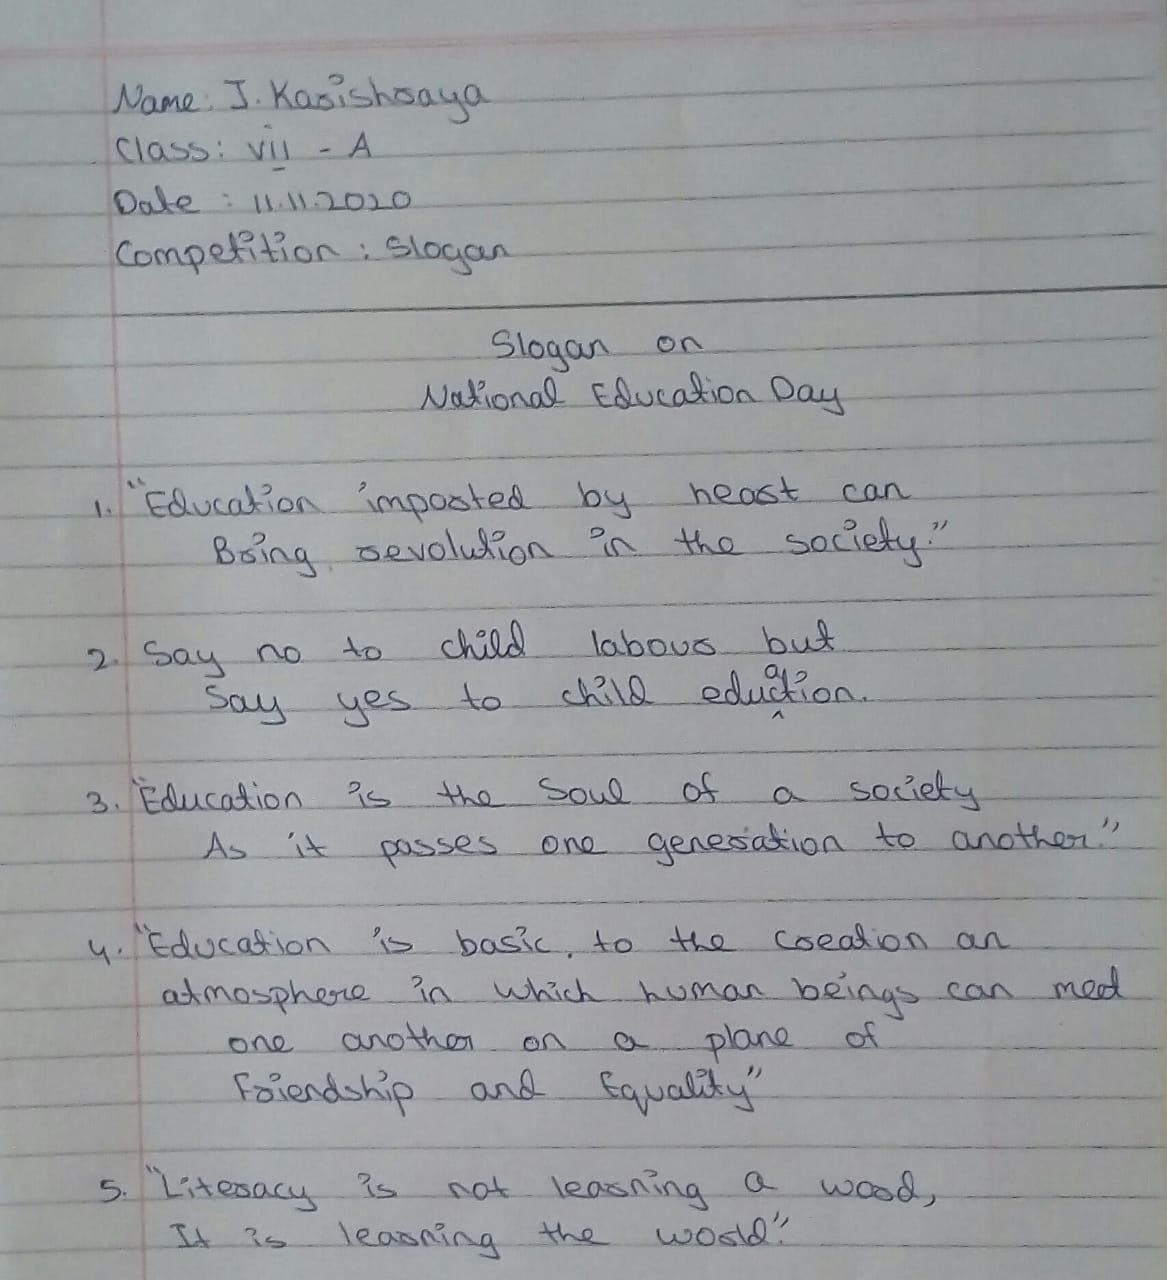 Name: J. Karishraya
Class: VII - A
Date : 11.11.2020
Competition : Slogan
Slogan on
National Education Day
1. "Education imparted by heart can
Bring revolution in the society."
2. Say no to child labour but
Say yes to child education.
3. "Education is the Soul of a society
As it passes one generation to another."
4. "Education is basic, to the creation an
atmosphere in which human beings can meet
one another on a plane of
Friendship and Equality"
5. "Literacy is not learning a word,
It is learning the world".